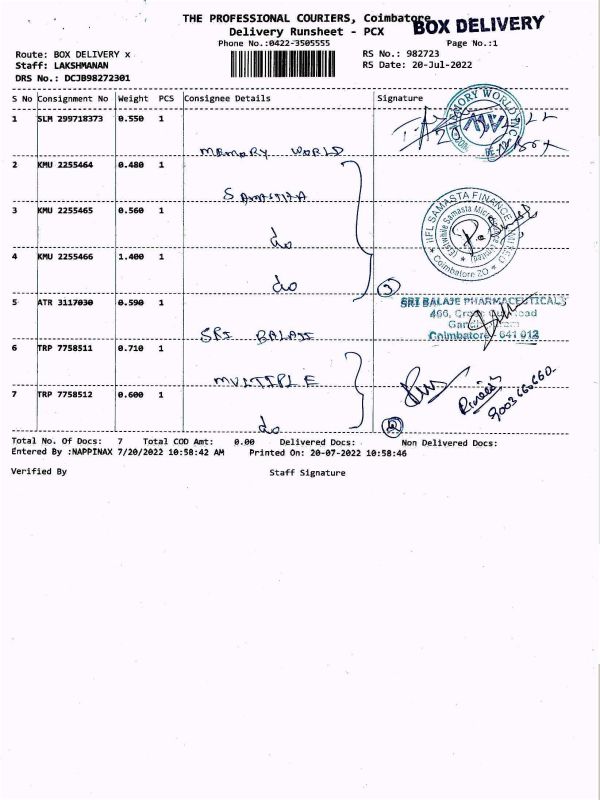 THE PROFESSIONAL COURIERS, Coimbatore
BOX DELIVERY
Delivery Runsheet - PCX
Phone No.:0422-3505555
Page No.:1
Route: BOX DELIVERY x
RS No.: 982723
Staff: LAKSHMANAN
RS Date: 20-Jul-2022
DRS No.: DCJB98272301
S No Consignment No Weight PCS Consignee Details Signature
1 SLM 299718373 0.550 1
MEMORY WORLD
2 KMU 2255464 0.480 1
SAMASTHA
3 KMU 2255465 0.560 1
do
4 KMU 2255466 1.400 1
do
3
IIFL SAMASTA FINANCE LIMITED
Coimbatore ZO
5 ATR 3117030 0.590 1
SRI BALAJI
SRI BALAJE PHARMACEUTICALS
Coimbatore - 641 012
6 TRP 7758511 0.710 1
MULTIPLE
7 TRP 7758512 0.600 1
do
2
Total No. Of Docs: 7 Total COD Amt: 0.00 Delivered Docs: Non Delivered Docs:
Entered By :NAPPINAX 7/20/2022 10:58:42 AM Printed On: 20-07-2022 10:58:46
Verified By Staff Signature